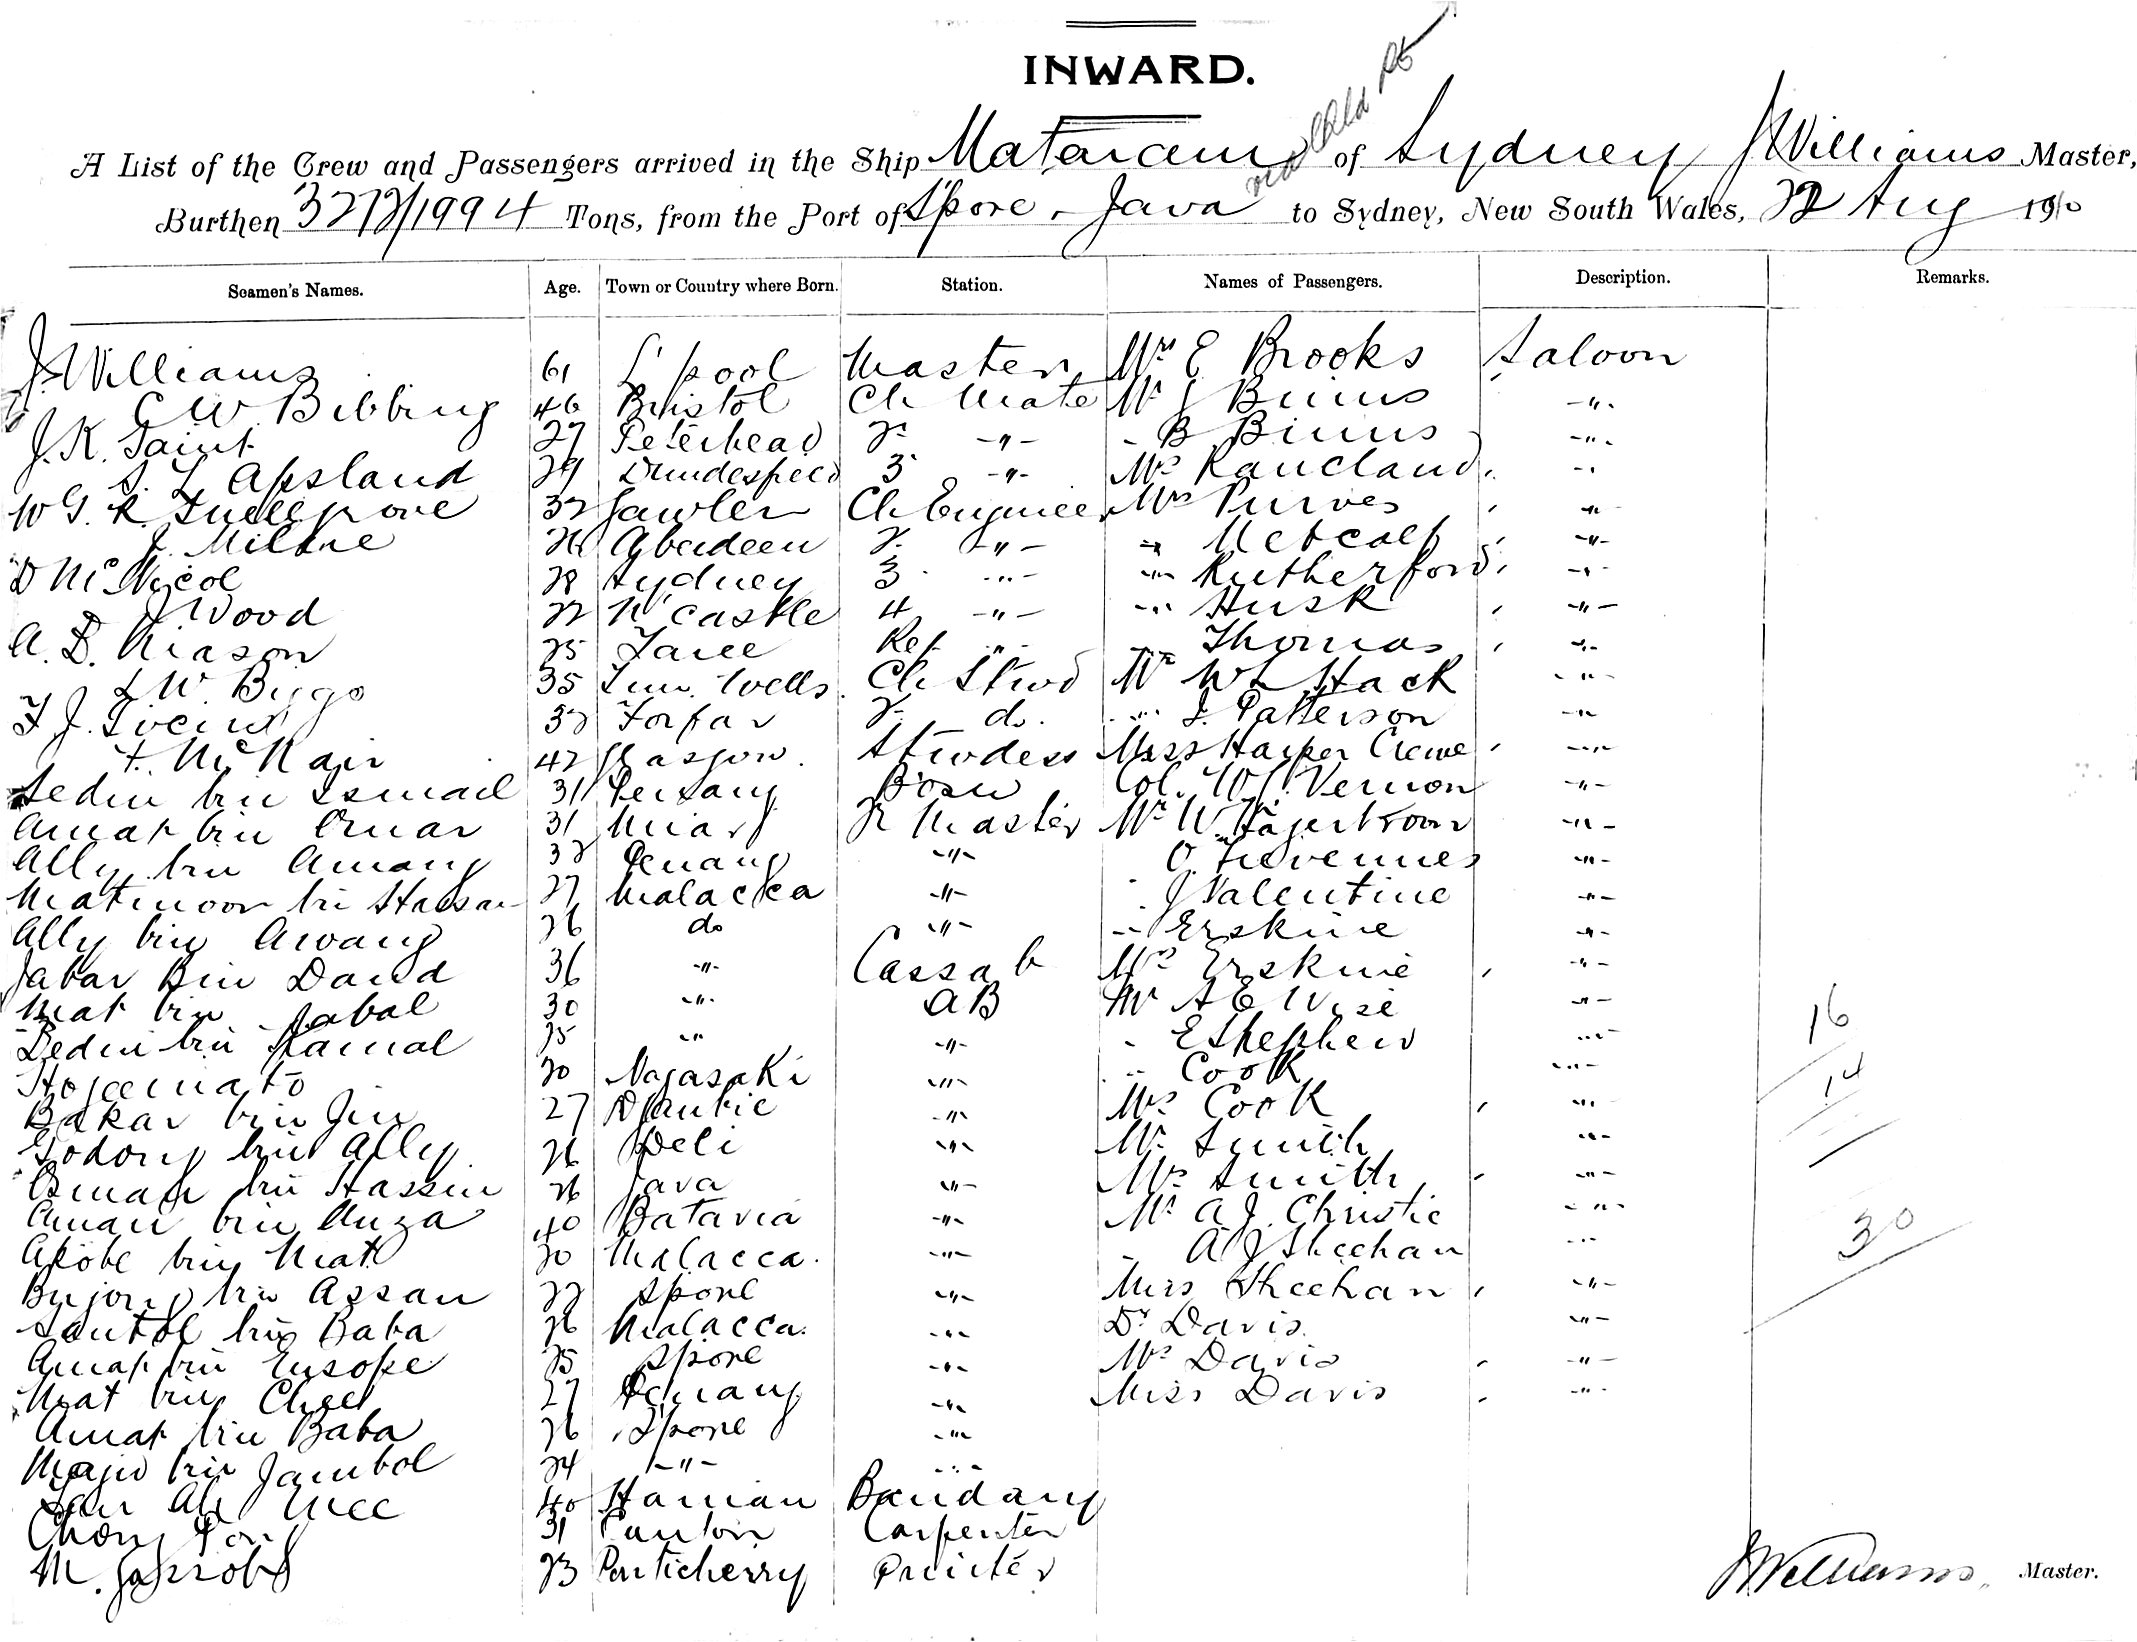 INWARD.
A List of the Crew and Passengers arrived in the Ship Mataram of Sydney J Williams Master,
Burthen Tons, from the Port of S'pore - Java via to Sydney, New South Wales, 22 Aug 1910
Seamen's Names. Age. Town or Country where Born. Station. Names of Passengers. Description. Remarks.
J Williams 61 L'pool Master Mrs E Brooks Saloon
C W Bibbing 46 Bristol Ch Mate Mr J Binns -"-
J. K. Saint 27 Peterhead 2 -"- - B Binns -"-
S. L. Apsland 29 3 -"- Mrs -"-
W G. R. 32 Gawler Ch Engineer Mrs Purves -"-
J. Milne 26 Aberdeen 2 -"- -"- Metcalf -"-
D McNicol 28 Sydney 3 -"- -"- Rutherford -"-
J Wood 22 N'castle 4 -"- -"- Husk -"-
A. D. Mason 25 Taree Ref -"- -"- Thomas -"-
L W Biggs 35 Tun. Wells Ch Stwd Mr W L Hack -"-
F J. 32 Forfar 2 do. -"- J. Patterson -"-
F. McNair 42 Glasgow. Stwdess Miss Harper Crewe -"-
Sedin bin Ismail 31 Penang Bosn Col. W L Vernon -"-
Amat bin Omar 31 Muar Q Master Mr W. -"-
Ally bin Amang 32 Penang -"- O. -"-
Matnoor bin Hassan 27 Malacca -"- J Valentine -"-
Ally bin Awang 26 do -"- -"- Erskine -"-
Jabar Bin Daud 36 -"- Cassab Mrs Erskine -"-
Mat bin Jabal 30 -"- AB Mr A E Wise -"-
Bedin bin Kamal 25 -"- -"- - E Shepherd -"-
20 Nagasaki -"- -"- Cook -"-
Bakar bin Jin 27 -"- Mrs Cook -"-
Godong bin Ally 26 Deli -"- Mr Smith -"-
Osman bin Hassin 26 Java -"- Mrs Smith -"-
Aman bin 40 Batavia -"- Mr A. J. Christie -"-
Akobe bin Mat 20 Malacca. -"- - A J Sheehan -"-
Bujong bin Assan 22 S'pore -"- Miss Sheehan -"-
bin Baba 26 Malacca. -"- Dr Davis. -"-
Amat bin Eusope 25 S'pore -"- Mrs Davis -"-
Mat bin Chee 27 Penang -"- Miss Davis -"-
Amat bin Baba 26 S'pore -"-
Majid bin Jambol 24 -"- -"-
Ah Mee 40 Hainan
Chong 31 Canton Carpenter
M. Jacobs 23 Ponticherry
16
14
30
J Williams Master.